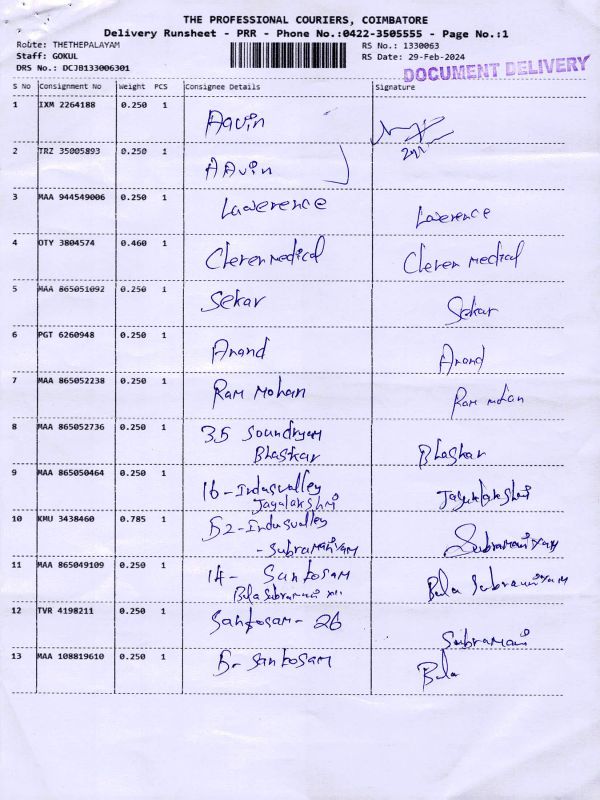 THE PROFESSIONAL COURIERS, COIMBATORE
Delivery Runsheet - PRR - Phone No.:0422-3505555 - Page No.:1
Route: THETHEPALAYAM
RS No.: 1330063
Staff: GOKUL
RS Date: 29-Feb-2024
DRS No.: DCJB133006301
DOCUMENT DELIVERY
S No Consignment No Weight PCS Consignee Details Signature
1 IXM 2264188 0.250 1 Aavin
2 TRZ 35005893 0.250 1 AAvin
3 MAA 944549006 0.250 1 Lawerence Lawerence
4 OTY 3804574 0.460 1 Cleren Medical Cleren Medical
5 MAA 865051092 0.250 1 Sekar Sekar
6 PGT 6260948 0.250 1 Anand Anand
7 MAA 865052238 0.250 1 Ram Mohan Ram
8 MAA 865052736 0.250 1 35 Soundryam
Bhaskar Bhaskar
9 MAA 865050464 0.250 1 16-Indusvalley
Jayalakshmi Jayalakshmi
10 KMU 3438460 0.785 1 52-Indusvalley
-Subramaniyam Subramaniyam
11 MAA 865049109 0.250 1 14- Santosam
Bala Subramani Bala Subramaniyam
12 TVR 4198211 0.250 1 Santosam-26 Subramani
13 MAA 108819610 0.250 1 5-Santosam Bala